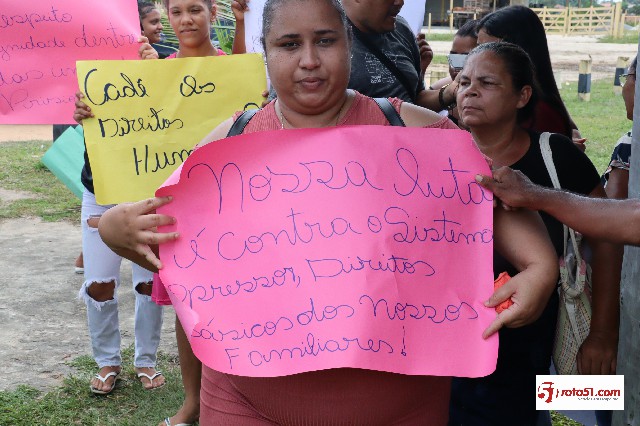 respeito
dignidade dentro
das un
Cadê dos
Direitos
Hum
Nossa luta
é contra o Sistema
opressor, Direitos
básicos dos Nossos
Familiares!
roto51.com